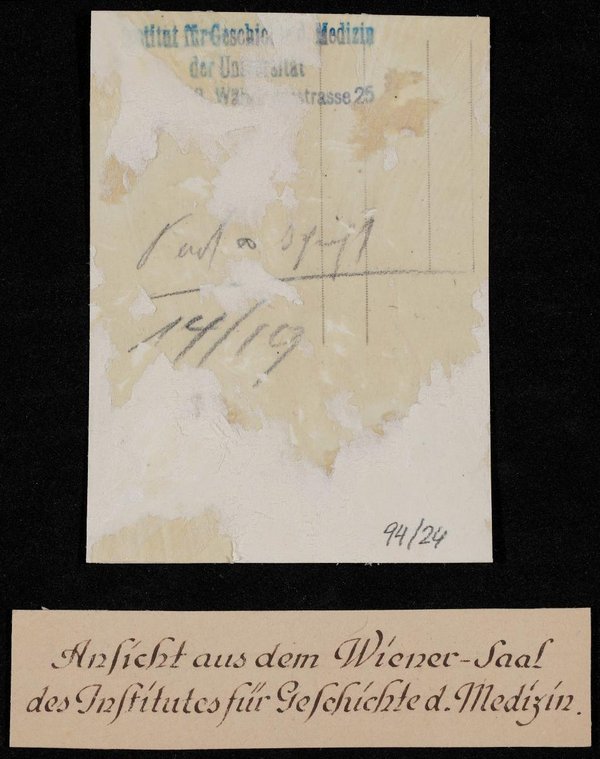 für Geschic Medizin
der Un
strasse 25
14/19
94/24
Ansicht aus dem Wiener-Saal
des Institutes für Geschichte d. Medizin.